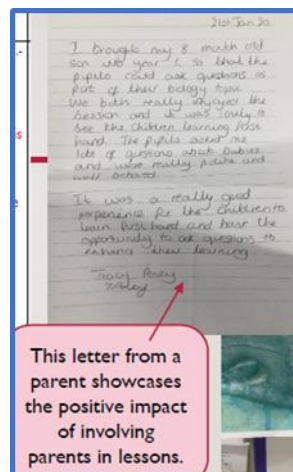 21st Jan 20
I brought my 8 month old
son into year 1 so that the
pupils could ask questions as
part of their biology topic.
We both really enjoyed the
session and it was lovely to
see the children learning first
hand. The pupils asked me
lots of questions about babies
and were really polite and
well behaved.
It was a really good
experience for the children to
learn first hand and have the
opportunity to ask questions to
enhance their learning.
Tracy
s
e
This letter from a
parent showcases
the positive impact
of involving
parents in lessons.